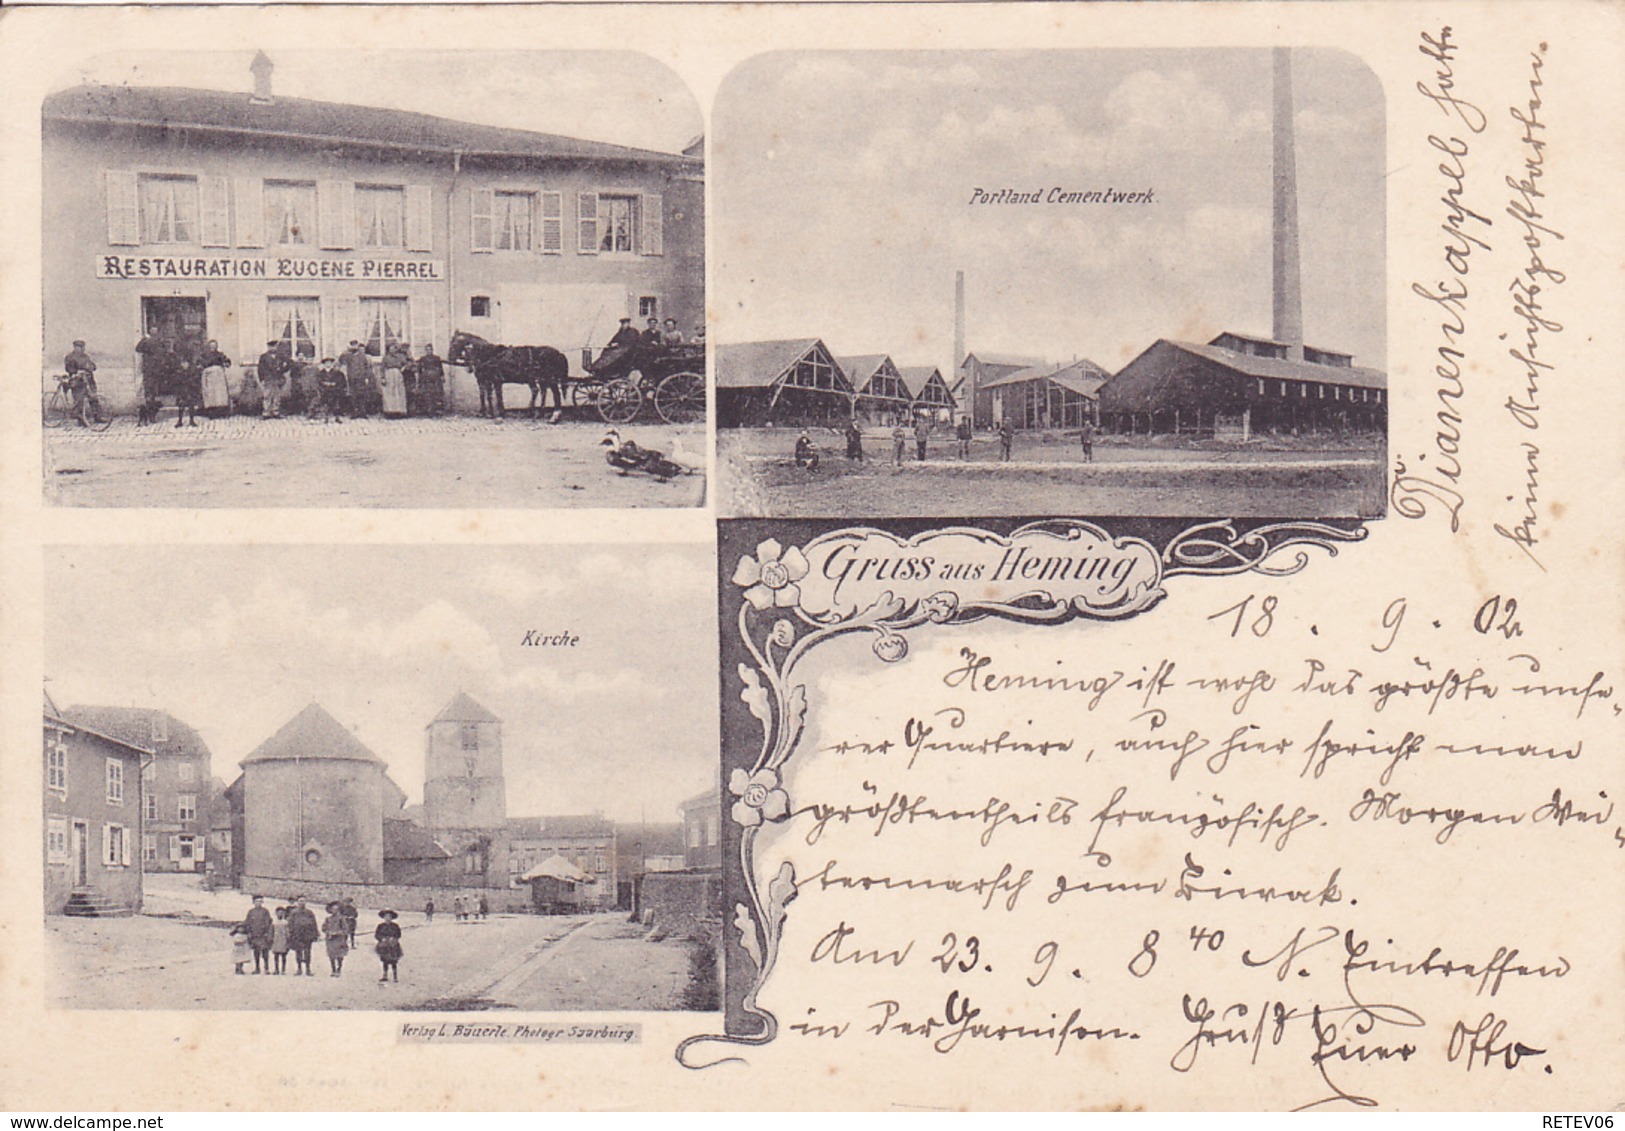 RESTAURATION EUGENE PIERREL
Portland Cementwerk.
Kirche
Verlag L. Bäuerle. Photogr. Saarburg.
Gruss aus Heming
18. 9. 02
Heming ist wohl das größte unse-
rer Quartiere, auch hier spricht man
größtentheils französisch. Morgen Wei-
termarsch zum Biwak.
Am 23. 9. 8 40 N. Eintreffen
in der Garnison. Gruß
Euer Otto.
Dianenkappel hatte
keine Ansichtspostkarten.
RETEV06